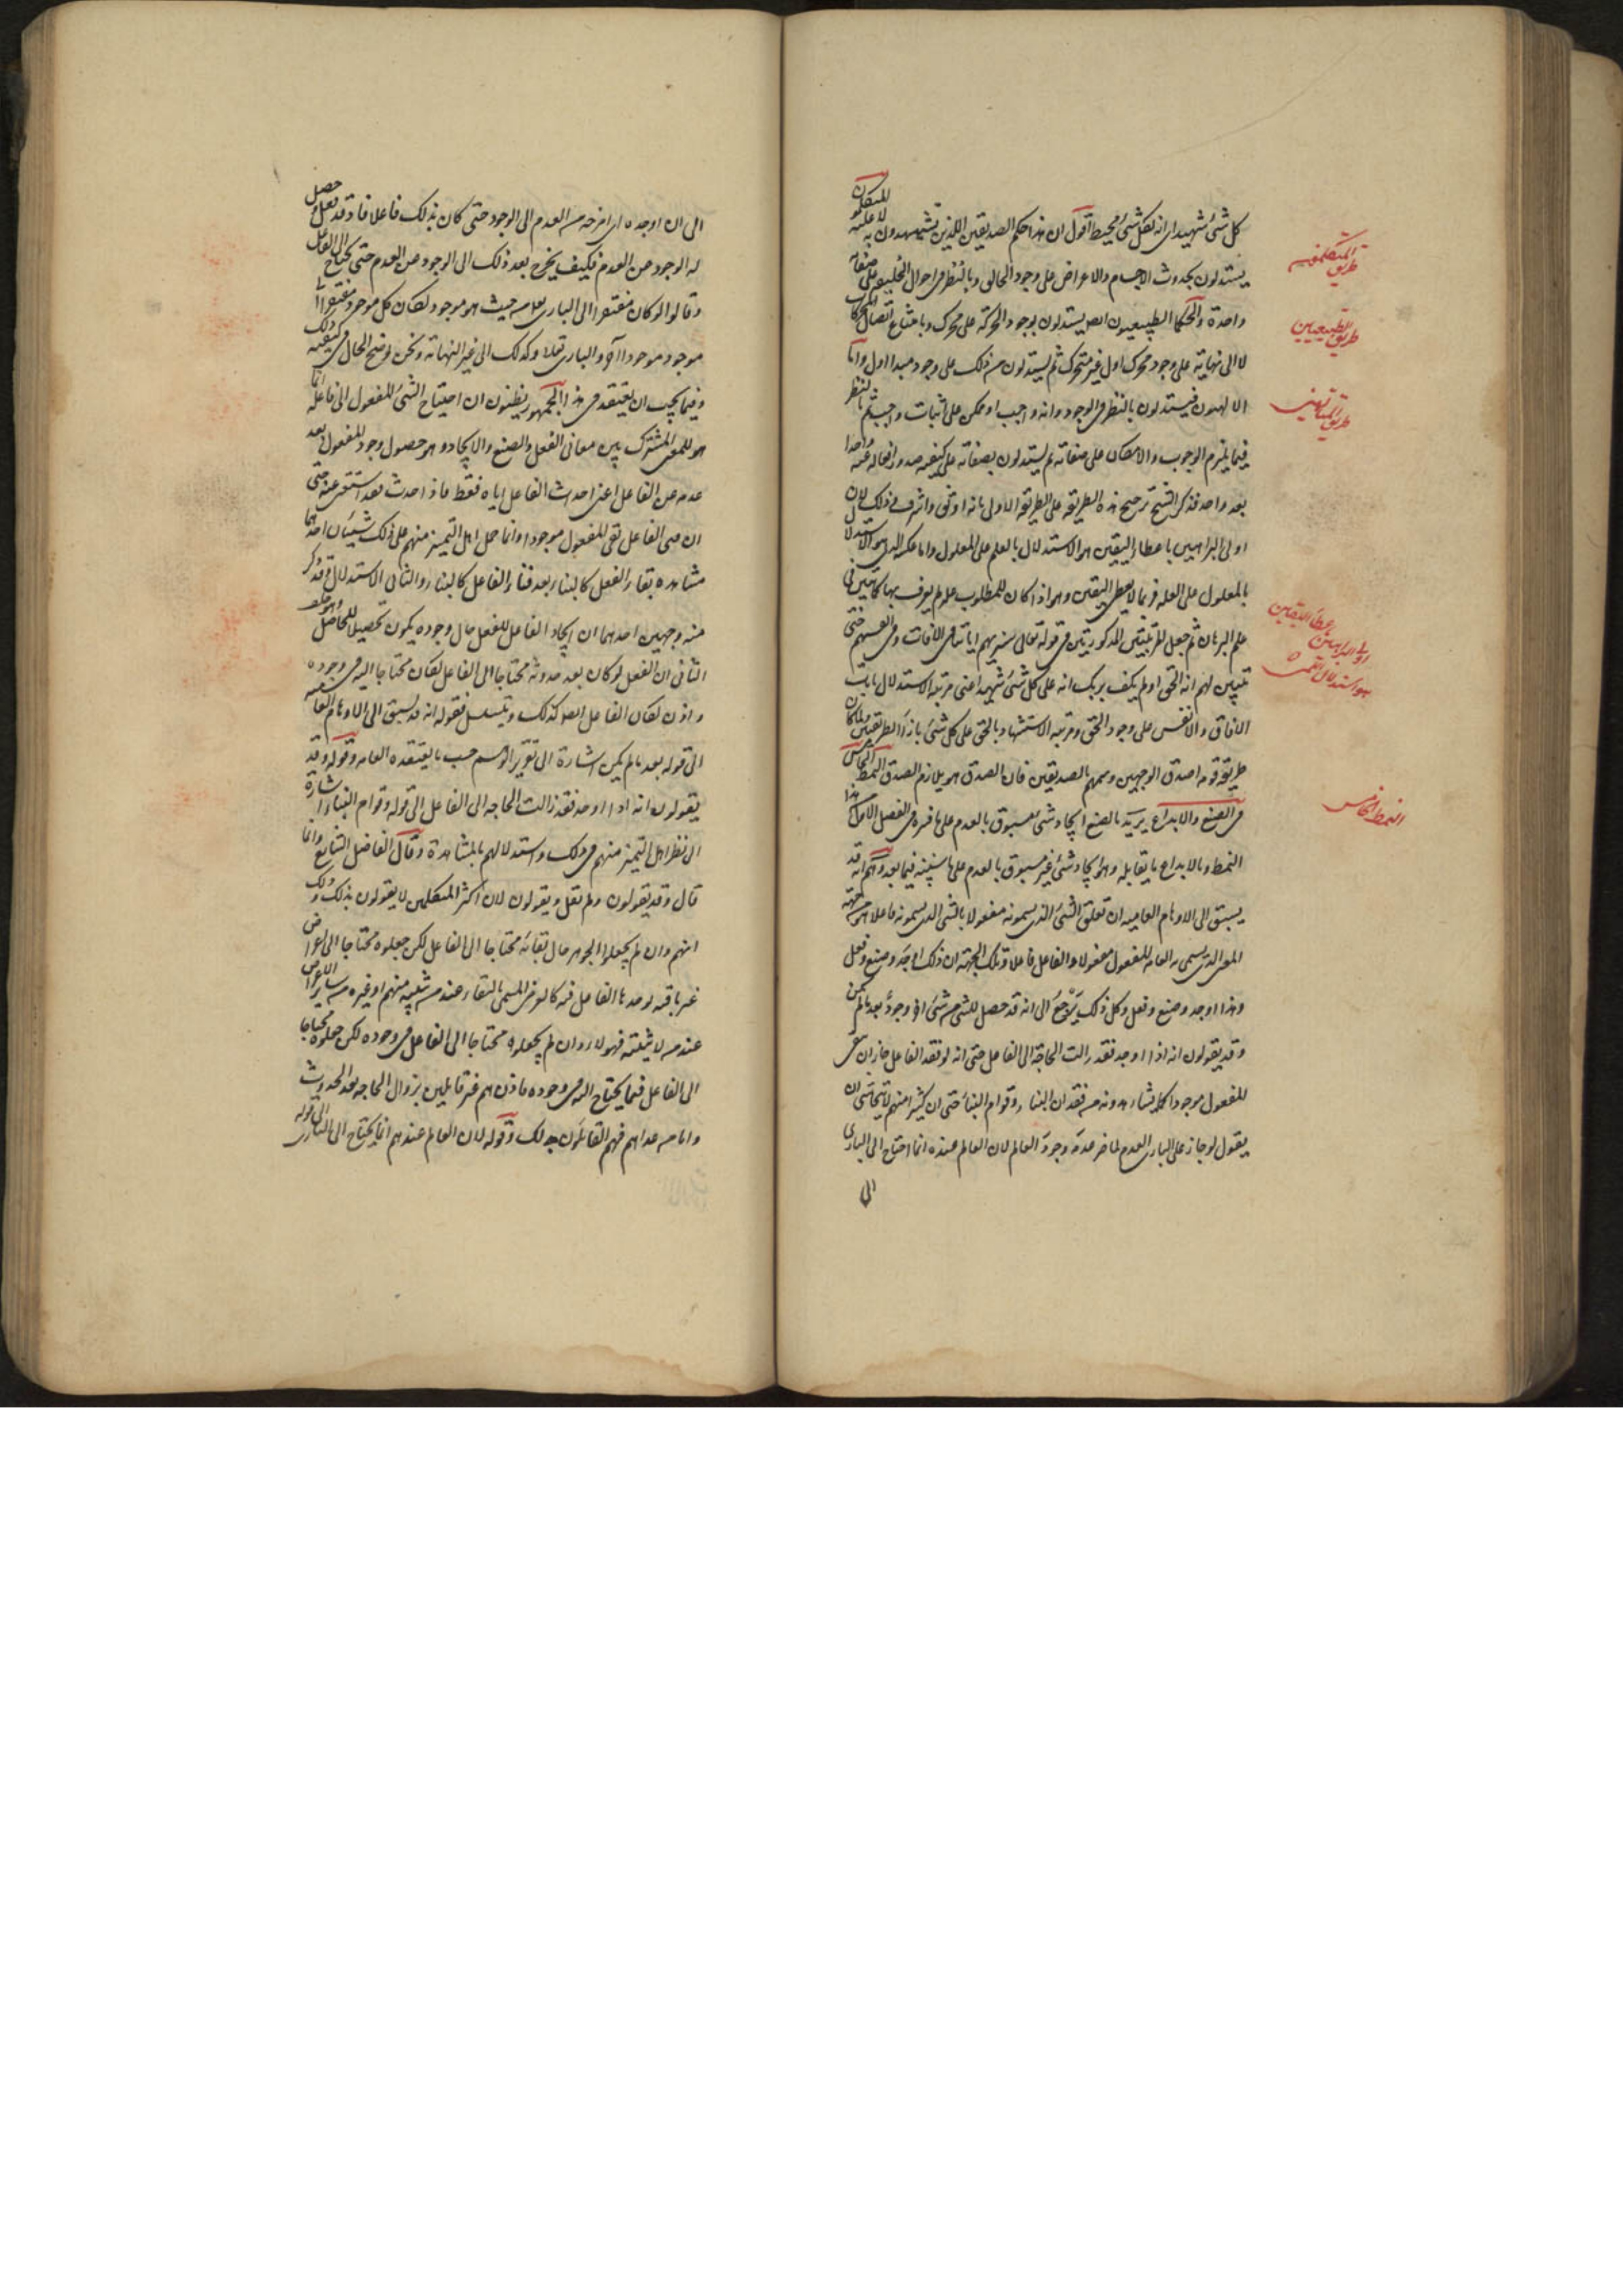 كل شئ شهيد اى انه لكل شئ محيط اقول ان هذا حكم الصديقين الذين يستشهدون به لا عليه المتكلمون
يستدلون بحدوث الاجسام والاعراض على وجود الخالق وبالنظر فى احوال الخليقة على صفاته
واحدة والحكما الطبيعيون ايضا يستدلون بوجود الحركة على محرك وبامتناع اتصال المحركات
لا الى نهاية على وجود محرك اول غير متحرك ثم يستدلون من ذلك على وجود مبدا اول واما
الالهيون فيستدلون بالنظر فى الوجود وانه واجب او ممكن على اثبات واجب ثم بالنظر
فيما يلزم الوجوب والامكان على صفاته ثم يستدلون بصفاته على كيفية صدور افعاله عنه واحدا
بعد واحد فذكر الشيخ ترجيح هذه الطريقة على الطريقة الاولى بانه اوثق واشرف وذلك لان
اولى البراهين باعطاء اليقين هو الاستدلال بالعلة على المعلول واما عكسه الذى هو الاستدلال
بالمعلول على العلة فربما لا يعطى اليقين وهو اذا كان للمطلوب علة لم يعرف بها كما تبين فى
علم البرهان ثم جعل المرتبتين المذكورتين فى قوله تعالى سنريهم اياتنا فى الافاق وفى انفسهم حتى
يتبين لهم انه الحق اولم يكف بربك انه على كل شئ شهيد اعنى مرتبة الاستدلال بايات
الافاق والانفس على وجود الحق ومرتبة الاستشهاد بالحق على كل شئ بازاء الطريقتين ولما كان
طريقة قومه اصدق الوجهين وسمهم بالصديقين فان الصديق هو ملازم الصدق النمط الخامس
فى الصنع والابداع يريد بالصنع ايجاد شئ مسبوق بالعدم على ما فسره فى الفصل الاول من هذا
النمط وبالابداع ما يقابله وهو ايجاد شئ غير مسبوق بالعدم على ما سنبينه فيما بعد وهم انه قد
يسبق الى الاوهام العامية ان تعلق الشئ الذى يسمونه مفعولا بالشئ الذى يسمونه فاعلا هو من جهة
المعنى الذى يسمى به العامة المفعول مفعولا والفاعل فاعلا وتلك الجهة ان ذلك اوجد وصنع وفعل
وهذا اوجد وصنع وفعل وكل ذلك يرجع الى انه قد حصل للشئ من شئ اخر وجود بعد ما لم يكن
وقد يقولون انه اذا اوجد فقد زالت الحاجة الى الفاعل حتى انه لو فقد الفاعل جاز ان يبقى
المفعول موجودا كما يشاهدونه من فقدان البناء وقوام البناء حتى ان كثيرا منهم لا يتحاشى ان
يقول لو جاز على البارى العدم لما ضر عدمه وجود العالم لان العالم عنده انما احتاج الى البارى
الى
طريق المتكلمين
طريق الطبيعيين
طريق الالهيين
اولى البراهين باعطاء اليقين
هو استدلال
النمط الخامس
الى ان اوجده اى اخرجه من العدم الى الوجود حتى كان بذلك فاعلا فاذ قد فعل وحصل
له الوجود عن العدم فكيف يخرج بعد ذلك الى الوجود عن العدم حتى يحتاج الى الفاعل
وقالوا لو كان مفتقرا الى البارى تعالى من حيث هو موجود لكان كل موجود مفتقرا الى
موجد موجودا اخر والبارى تعالى وكذلك الى غير النهاية ونحن نوضح الحال فى كيفية ذلك
وفيما يجب ان يعتقد فى هذا الجمهور يظنون ان احتياج الشئ المفعول الى فاعله انما
هو للمعنى المشترك بين معانى الفعل والصنع والايجاد وهو حصول وجود للمفعول بعد
عدمه عن الفاعل اعنى احداث الفاعل اياه فقط فاذا حدث فقد استغنى عنه حتى
ان فنى الفاعل بقى المفعول موجودا وانما حمل اهل التميز منهم على ذلك شيئان احدهما
مشاهدة بقاء الفعل كالبناء بعد فناء الفاعل كالبناء والثانى الاستدلال وقد ذكر
منه وجهين احدهما ان ايجاد الفاعل للفعل حال وجوده يكون تحصيلا للحاصل وهو خلف
الثانى ان الفعل لو كان بعد حدوثه محتاجا الى الفاعل لكان محتاجا اليه فى وجوده
واذن لكان الفاعل ايضا كذلك ويتسلسل فقوله انه قد يسبق الى الاوهام العامية
الى قوله بعد ما لم يكن اشارة الى تقرير الوهم حسب ما يعتقده العامة وقوله وقد
يقولون انه اذا اوجد فقد زالت الحاجة الى الفاعل الى قوله وقوام البناء اشارة
الى نظر اهل التميز منهم فى ذلك واستدلالهم بالمشاهدة وقال الفاضل الشارح وانما
قال وقد يقولون ولم يقل ويقولون لان اكثر المتكلمين لا يقولون بذلك وذلك
انهم وان لم يجعلوا الجوهر حال بقائه محتاجا الى الفاعل لكن جعلوه محتاجا الى اعراض
غير باقية يوجدها الفاعل فيه كالعرض المسمى بالبقاء عند من يثبته منهم او غيره من ساير الاعراض
عند من لا يثبته فهؤلاء وان لم يجعلوه محتاجا الى الفاعل فى وجوده لكن جعلوه محتاجا
الى الفاعل فيما يحتاج اليه فى وجوده فاذن هم غير قايلين بزوال الحاجة بعد الحدوث
واما من عداهم فهم القائلون بذلك وقوله لان العالم عندهم انما يحتاج الى البارى الى قوله